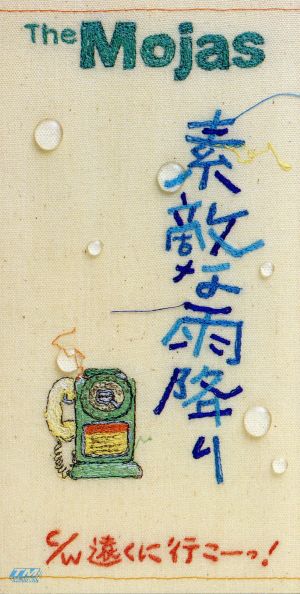 The Mojas
素敵な雨降り
c/w 遠くに行こーっ!
TM